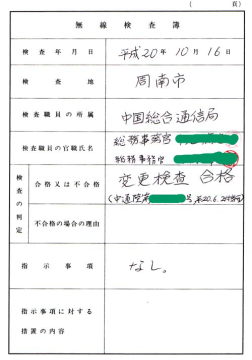 ( 頁)
無線検査簿
検査年月日 平成20年10月16日
検査地 周南市
検査職員の所属 中国総合通信局
検査職員の官職氏名 総務事務官
総務事務官
検査の判定 合格又は不合格 変更検査 合格
不合格の場合の理由 (中通陸 号 20.6.2
指示事項 なし。
指示事項に対する
措置の内容